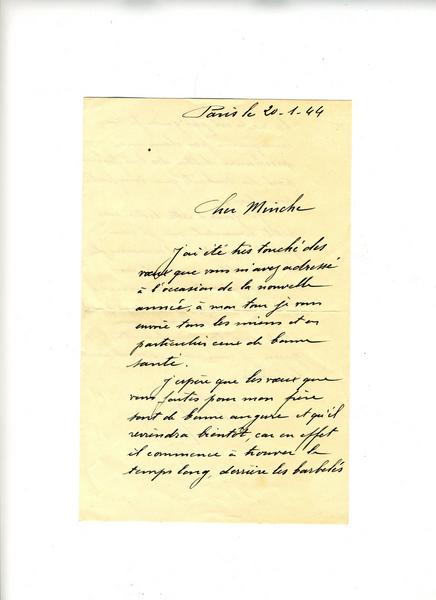 Paris le 20-1-44
Cher Minche
J'ai été très touché des
vœux que vous m'avez adressé
à l'occasion de la nouvelle
année, à mon tour je vous
envoie tous les miens et en
particulier ceux de bonne
santé.
J'espère que les vœux que
vous faites pour mon frère
sont de bonne augure et qu'il
reviendra bientôt, car en effet
il commence à trouver le
temps long, derrière les barbelés